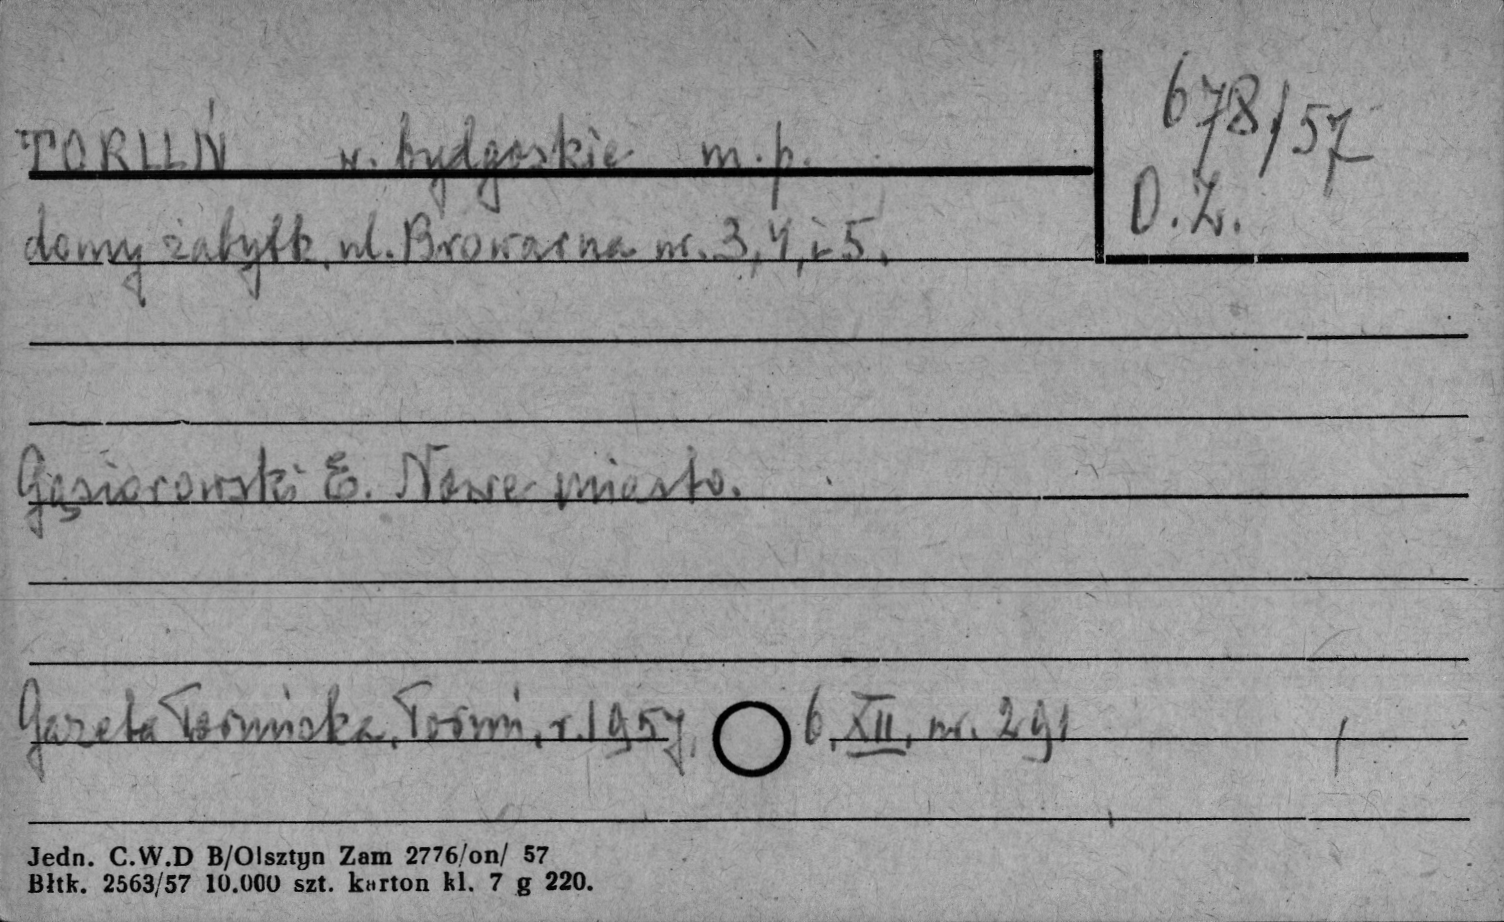 TORUŃ w. bydgoskie m.p.
678/57
D.Z.
domy zabytk. ul. Browarna nr. 3, 4, i 5.
Gąsiorowski E. Nowe miasto.
Gazeta Toruńska, Toruń, r. 1957, 6. XII, nr. 291
Jedn. C.W.D B/Olsztyn Zam 2776/on/ 57
Błtk. 2563/57 10.000 szt. karton kl. 7 g 220.